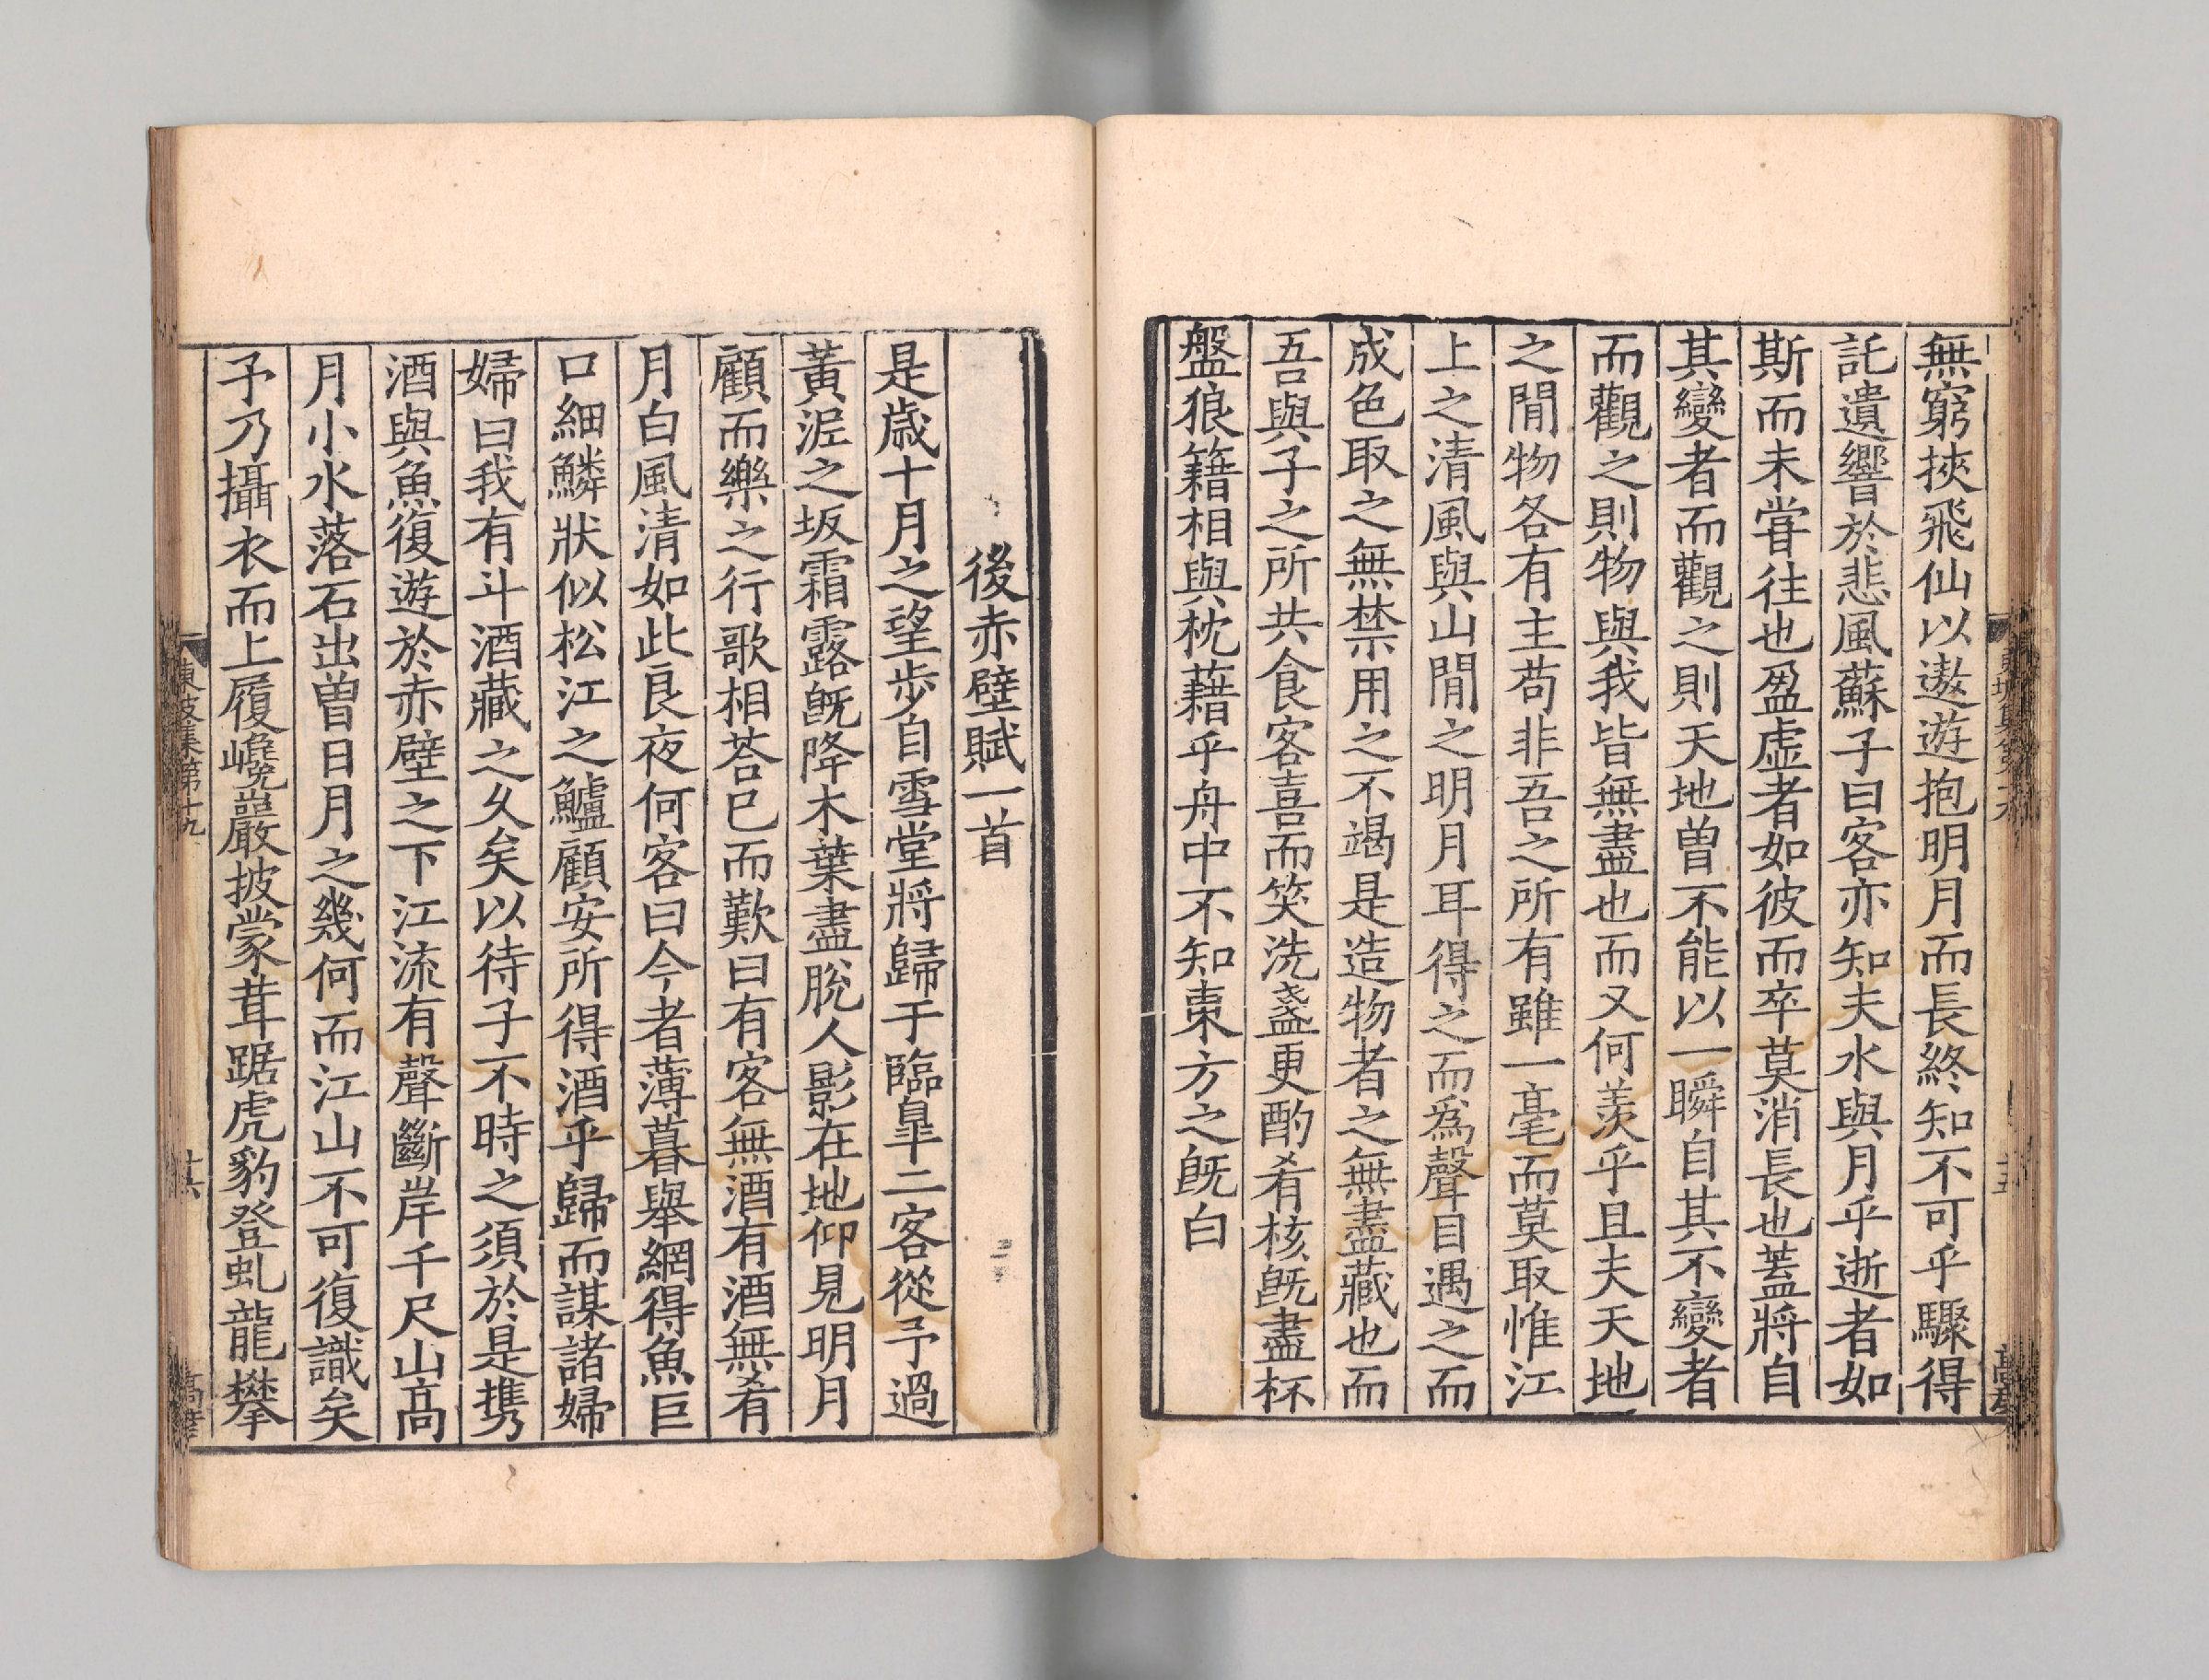 無窮挾飛仙以遨遊抱明月而長終知不可乎驟得
託遺響於悲風蘇子曰客亦知夫水與月乎逝者如
斯而未甞往也盈虛者如彼而卒莫消長也蓋將自
其變者而觀之則天地曾不能以一瞬自其不變者
而觀之則物與我皆無盡也而又何羨乎且夫天地
之閒物各有主苟非吾之所有雖一毫而莫取惟江
上之清風與山閒之明月耳得之而爲聲目遇之而
成色取之無禁用之不竭是造物者之無盡藏也而
吾與子之所共食客喜而笑洗盞更酌肴核旣盡杯
盤狼籍相與枕藉乎舟中不知東方之旣白
後赤壁賦一首
是歲十月之望步自雪堂將歸于臨皐二客從予過
黃泥之坂霜露旣降木葉盡脫人影在地仰見明月
顧而樂之行歌相荅已而歎曰有客無酒有酒無肴
月白風清如此良夜何客曰今者薄暮舉網得魚巨
口細鱗狀似松江之鱸顧安所得酒乎歸而謀諸婦
婦曰我有斗酒藏之久矣以待子不時之須於是携
酒與魚復遊於赤壁之下江流有聲斷岸千尺山高
月小水落石出曾日月之幾何而江山不可復識矣
予乃攝衣而上履巉巖披蒙茸踞虎豹登虬龍攀
東坡集第十九
十六